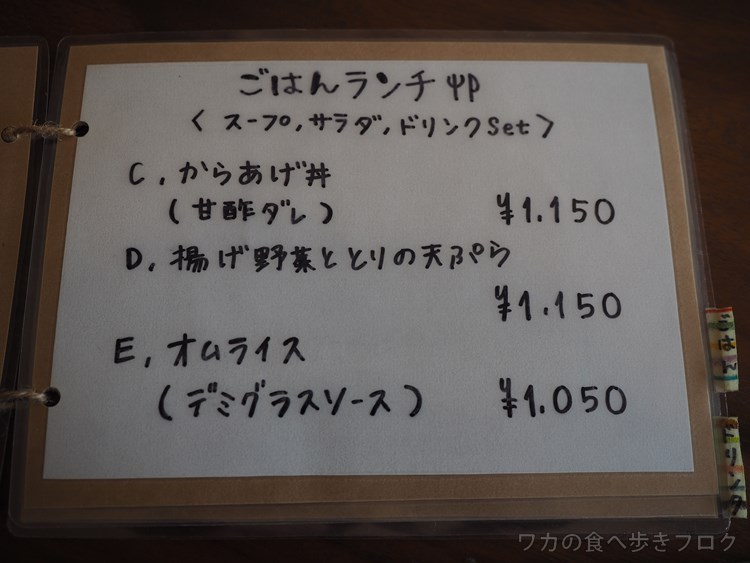 ごはんランチ
< スープ,サラダ,ドリンクSet >
C, からあげ丼
(甘酢ダレ) ¥1.150
D, 揚げ野菜ととりの天ぷら
¥1.150
E, オムライス
(デミグラスソース) ¥1.050
ごはん
ドリンク
ワカの食べ歩きブログ